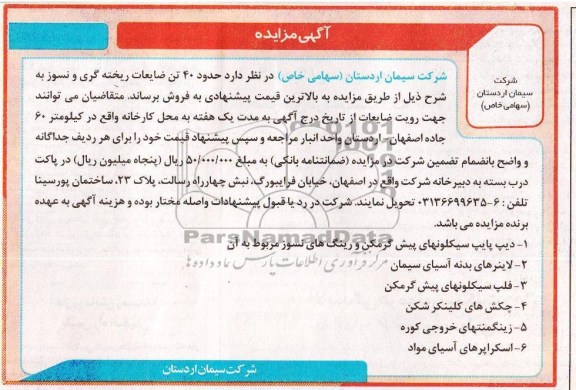 آگهی مزایده
شرکت
سیمان اردستان
(سهامی خاص)
شرکت سیمان اردستان (سهامی خاص) در نظر دارد حدود ۴۰ تن ضایعات ریخته گری و نسوز به
شرح ذیل از طریق مزایده به بالاترین قیمت پیشنهادی به فروش برساند. متقاضیان می توانند
جهت رویت ضایعات از تاریخ درج آگهی به مدت یک هفته به محل کارخانه واقع در کیلومتر ۶۰
جاده اصفهان - اردستان واحد انبار مراجعه و سپس پیشنهاد قیمت خود را برای هر ردیف جداگانه
و واضح بانضمام تضمین شرکت در مزایده (ضمانتنامه بانکی) به مبلغ ۵۰/۰۰۰/۰۰۰ ریال (پنجاه میلیون ریال) در پاکت
درب بسته به دبیرخانه شرکت واقع در اصفهان، خیابان فرایبورگ، نبش چهارراه رسالت، پلاک ۲۳، ساختمان پورسینا
تلفن : ۶-۰۳۱۳۶۶۹۹۶۳۵ تحویل نمایند. شرکت در رد یا قبول پیشنهادات واصله مختار بوده و هزینه آگهی به عهده
برنده مزایده می باشد.
۱- دیپ پایپ سیکلونهای پیش گرمکن و رینگ های نسوز مربوط به آن
۲- لاینرهای بدنه آسیای سیمان
۳- فلپ سیکلونهای پیش گرمکن
۴- چکش های کلینکر شکن
۵- زینگمنتهای خروجی کوره
۶- اسکراپرهای آسیای مواد
شرکت سیمان اردستان
ParsNamadData
مرکز فرآوری اطلاعات پارس نماد داده ها